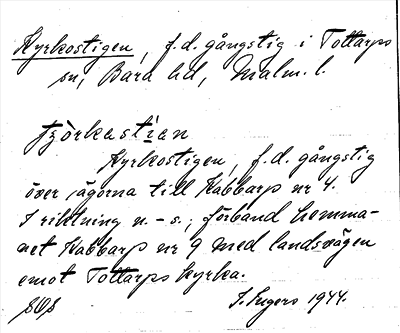 Kyrkostigen, f.d. gångstig i Tottarps
sn, Bara hd, Malm. l.
Kyrkostigen, f.d. gångstig
över ägorna till Kabbarp nr 4.
I riktning n.-s.; förband hemma-
net Kabbarp nr 9 med landsvägen
emot Tottarps kyrka.
1944.